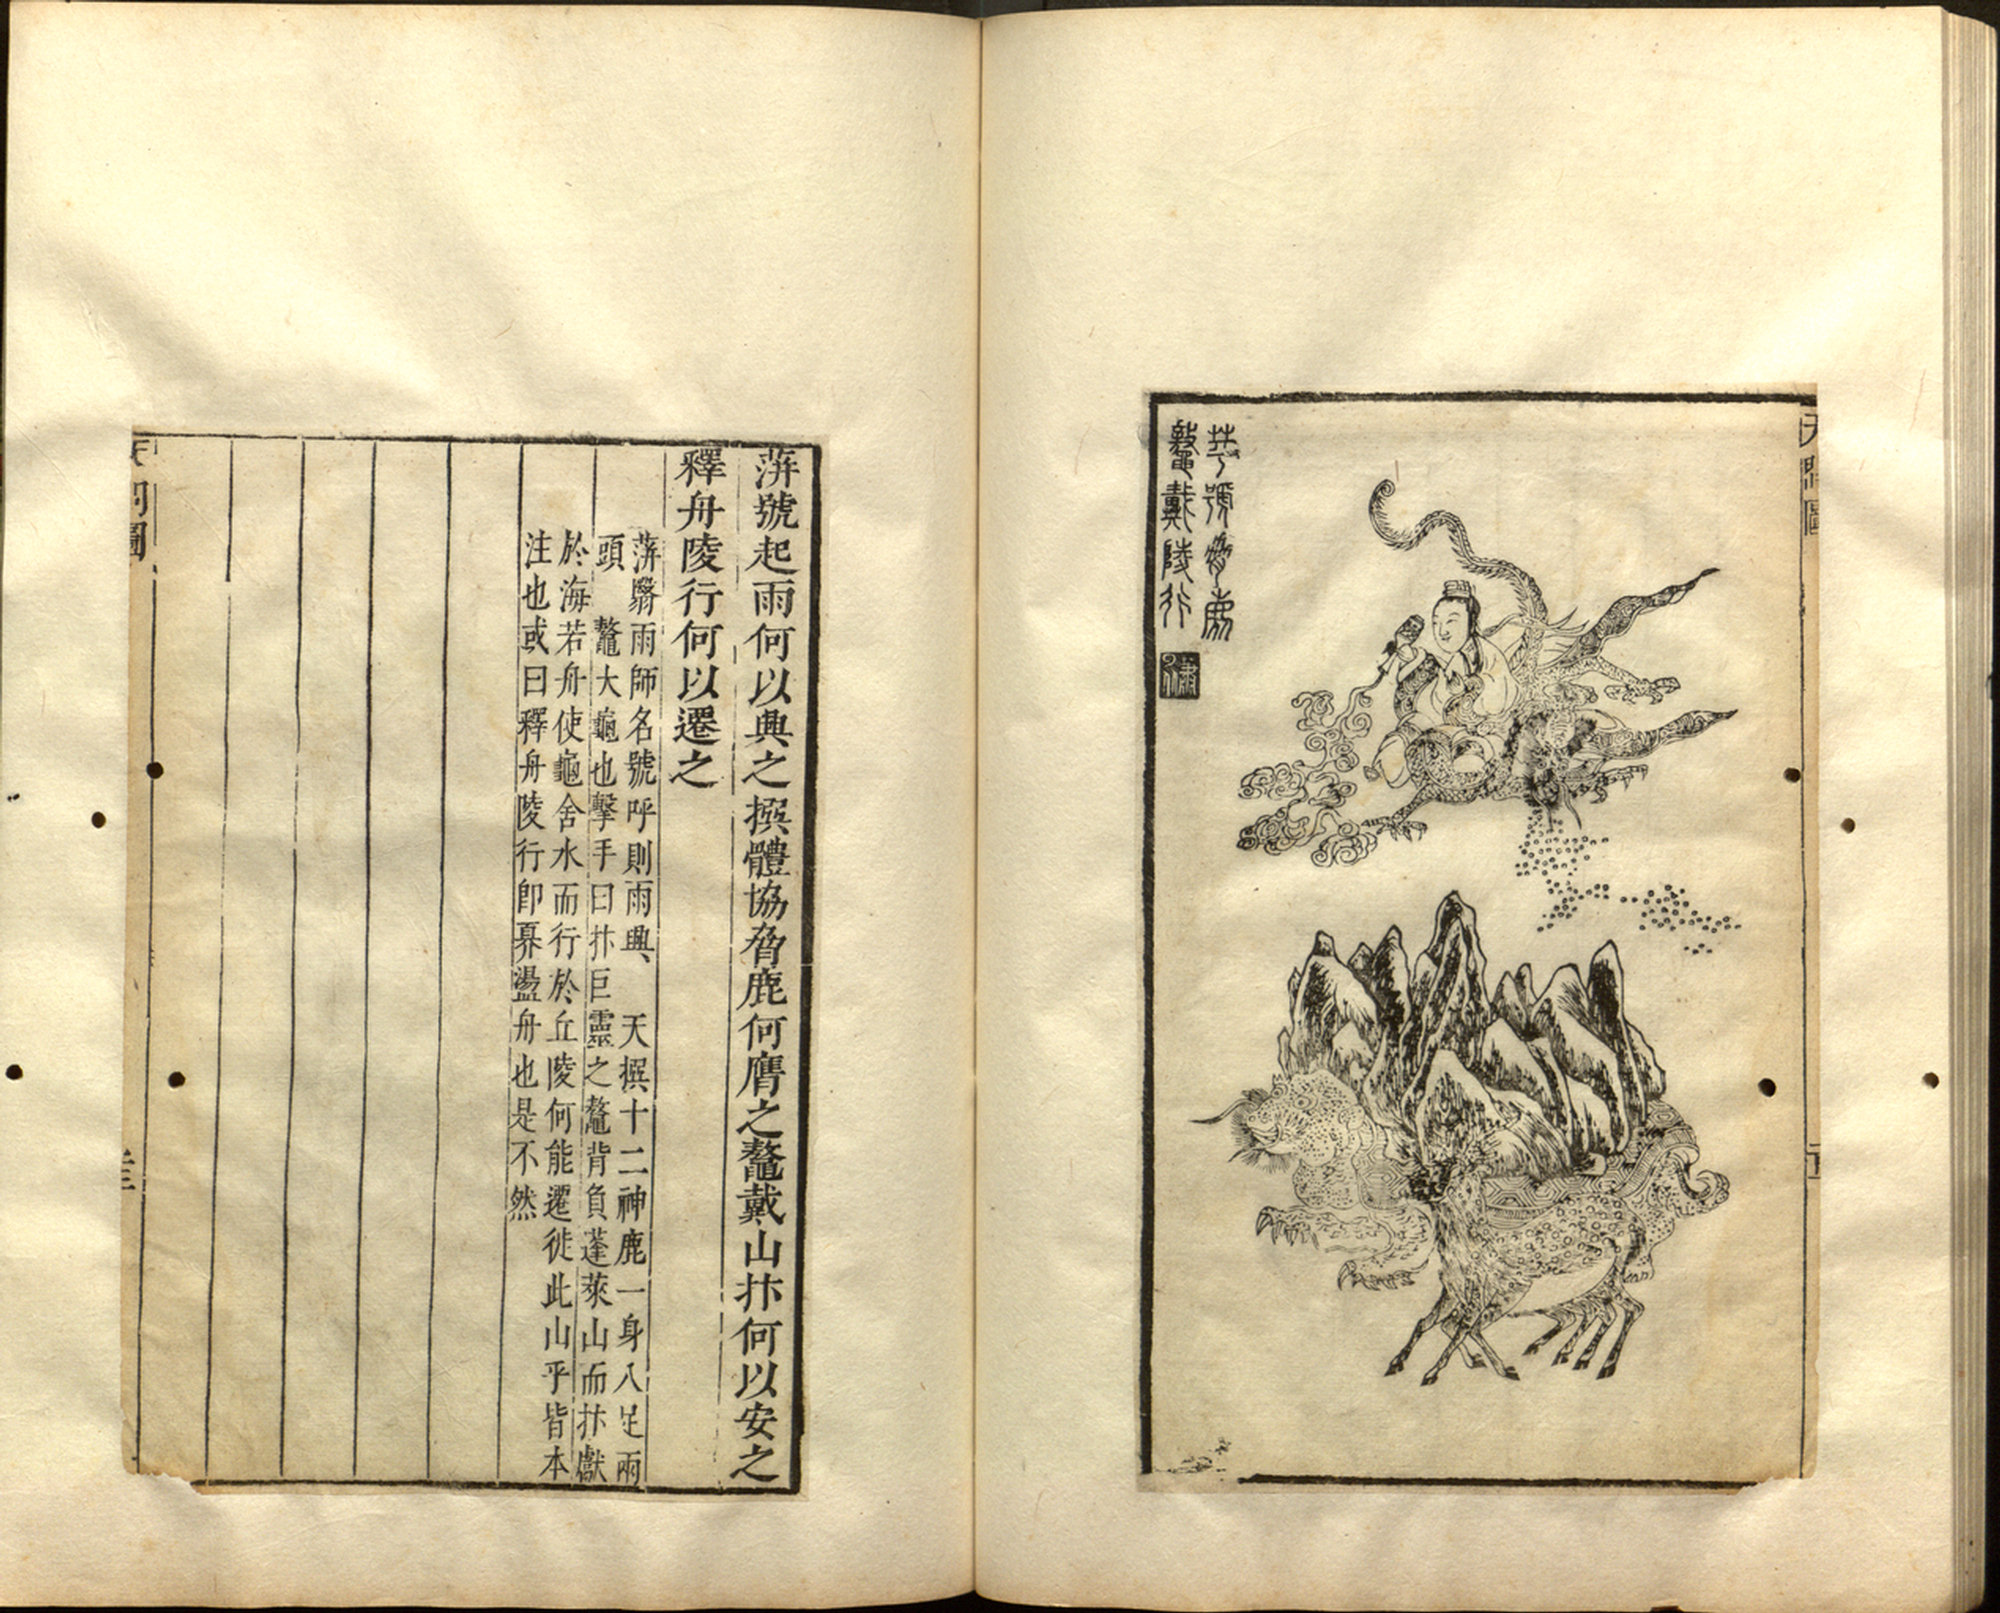 苹號脅鹿
鼇戴陵行
天問圖
蓱號起雨何以興之撰體協脅鹿何膺之鼇戴山抃何以安之
釋舟陵行何以遷之
蓱翳雨師名號呼則雨興、天撰十二神鹿一身八足兩
頭 鼇大龜也擊手曰抃巨靈之鼇背負蓬萊山而抃獻
於海若舟使龜舍水而行於丘陵何能遷徙此山乎皆本
注也或曰釋舟陵行卽奡盪舟也是不然
天問圖